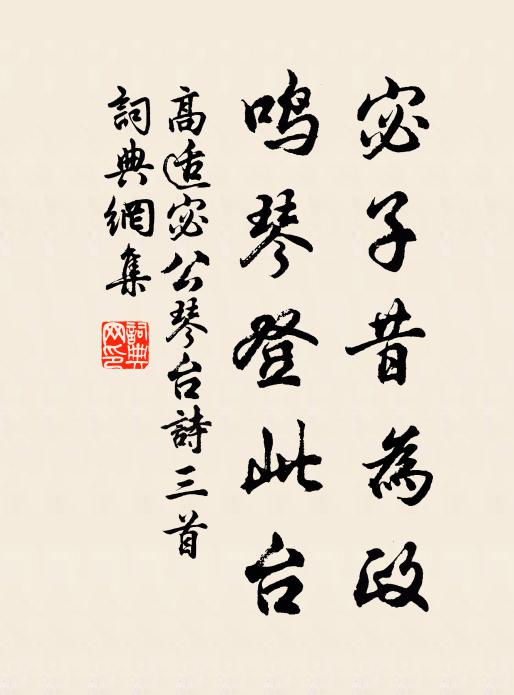 宓子昔為政
鳴琴登此台
高适宓公琴台詩三首
詞典網集
詞典
网印